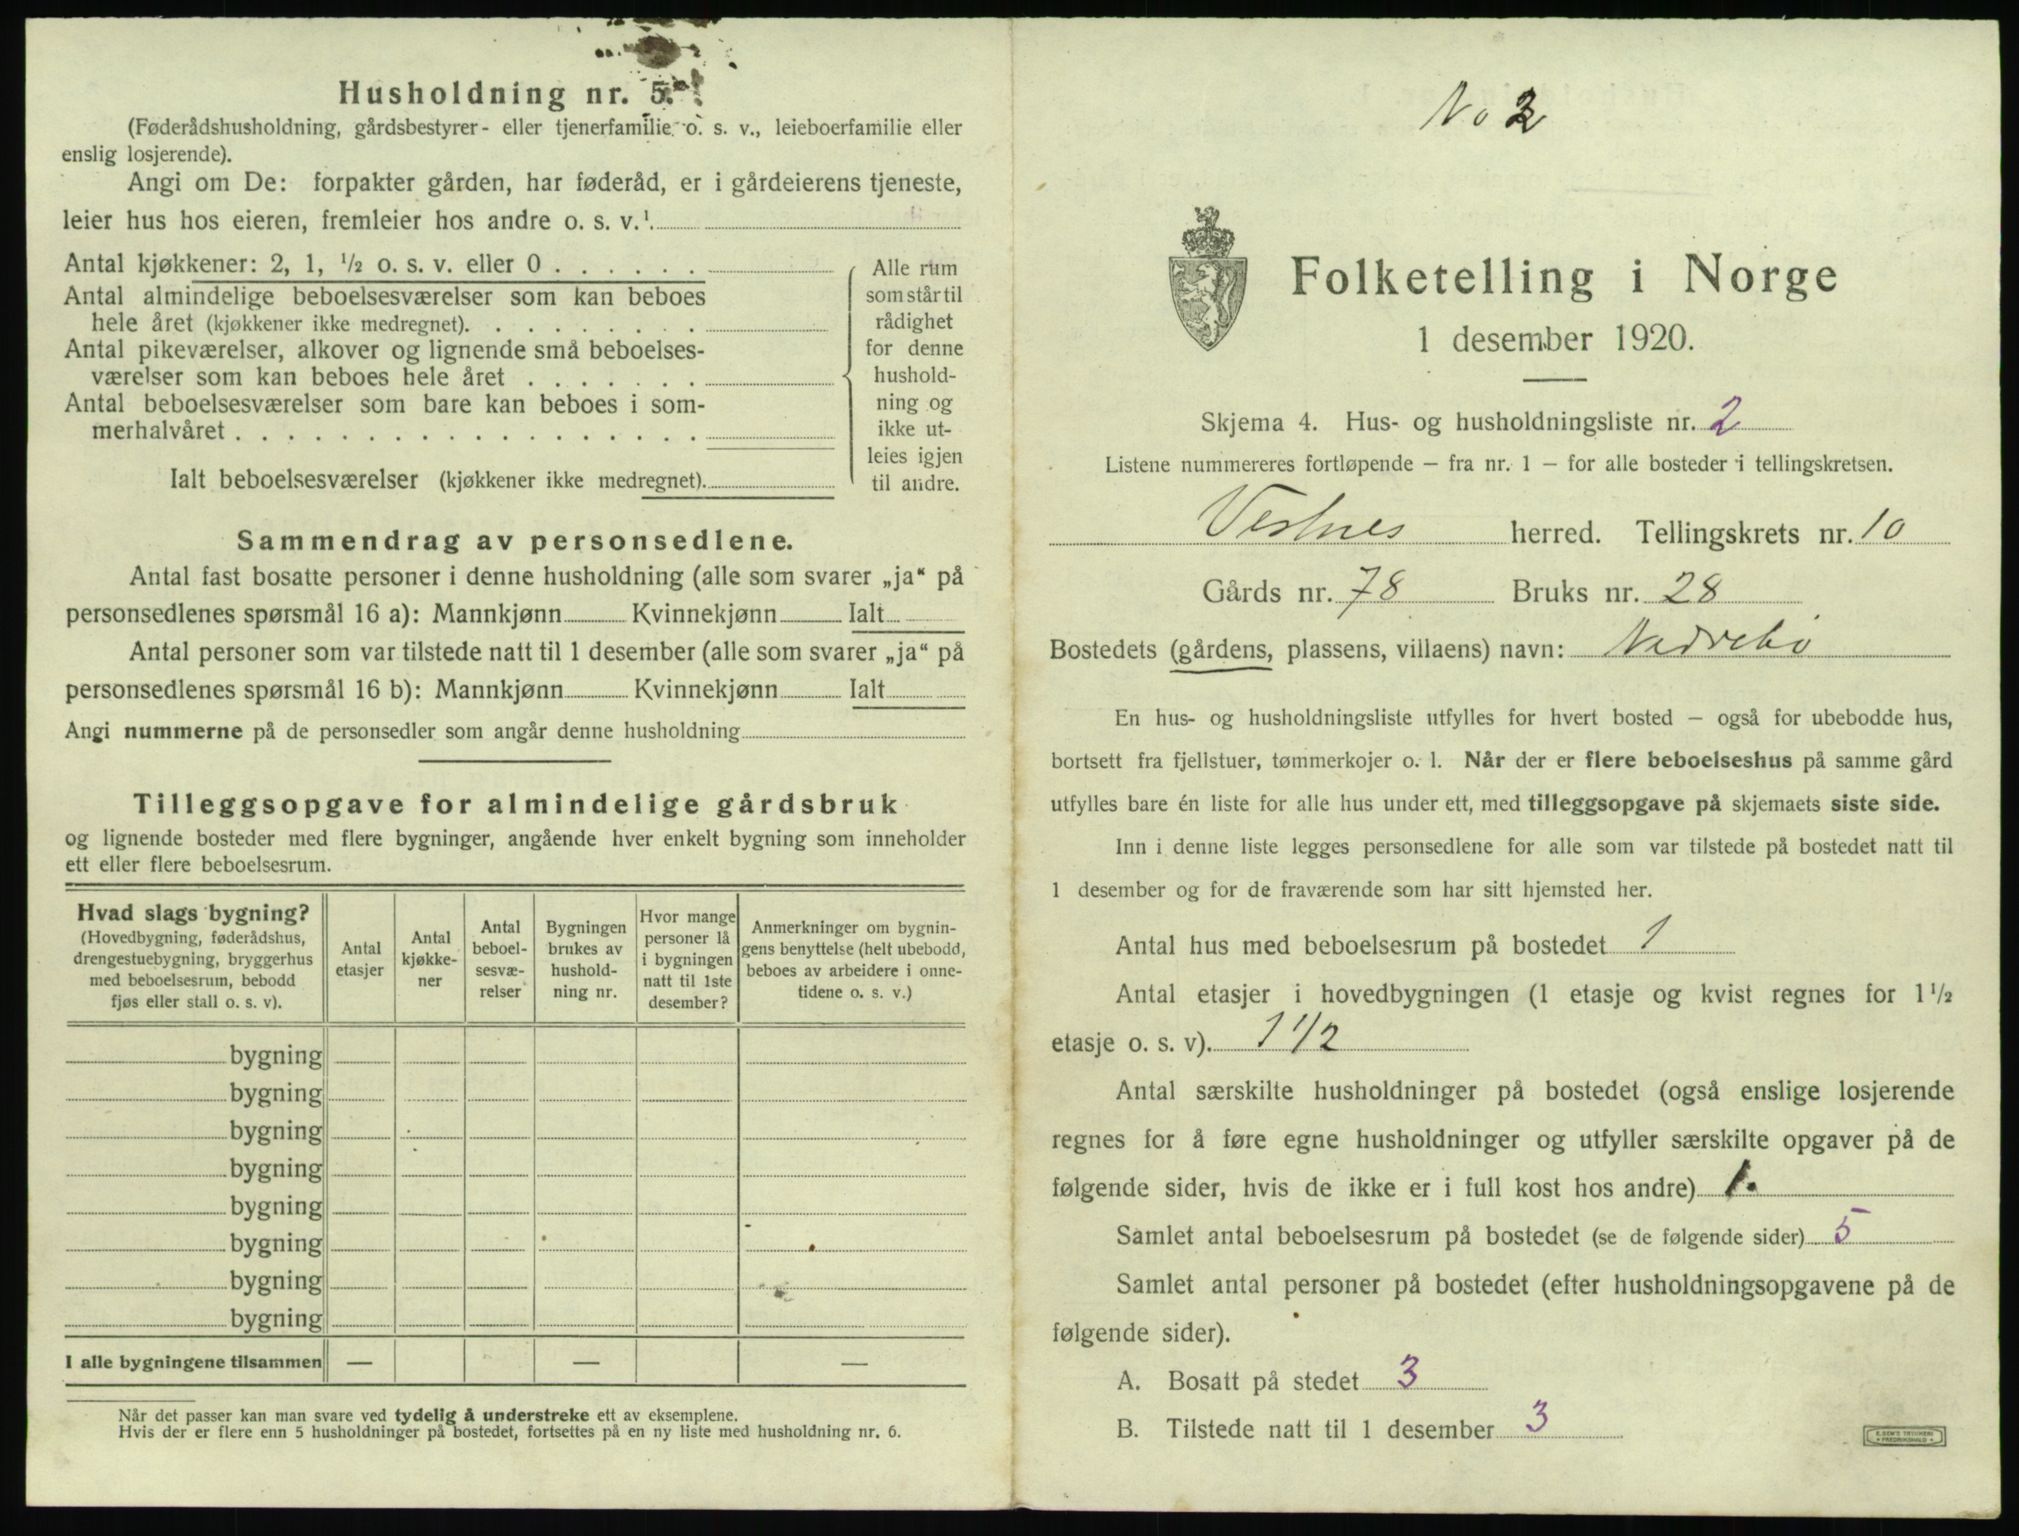 Husholdning nr. 5.
(Føderådshusholdning, gårdsbestyrer- eller tjenerfamilie o. s. v., leieboerfamilie eller
enslig losjerende).
Angi om De: forpakter gården, har føderåd, er i gårdeierens tjeneste,
leier hus hos eieren, fremleier hos andre o. s. v.¹
Antal kjøkkener: 2, 1, ½ o. s. v. eller 0
Antal almindelige beboelsesværelser som kan beboes
hele året (kjøkkener ikke medregnet).
Antal pikeværelser, alkover og lignende små beboelses-
værelser som kan beboes hele året
Antal beboelsesværelser som bare kan beboes i som-
merhalvåret
Ialt beboelsesværelser (kjøkkener ikke medregnet).
Alle rum
som står til
rådighet
for denne
hushold-
ning og
ikke ut-
leies igjen
til andre.
Sammendrag av personsedlene.
Antal fast bosatte personer i denne husholdning (alle som svarer „ja“ på
personsedlenes spørsmål 16 a): Mannkjønn Kvinnekjønn Ialt
Antal personer som var tilstede natt til 1 desember (alle som svarer „ja“ på
personsedlenes spørsmål 16 b): Mannkjønn Kvinnekjønn Ialt
Angi nummerne på de personsedler som angår denne husholdning
Tilleggsopgave for almindelige gårdsbruk
og lignende bosteder med flere bygninger, angående hver enkelt bygning som inneholder
ett eller flere beboelsesrum.
Hvad slags bygning?
(Hovedbygning, føderådshus,
drengestuebygning, bryggerhus
med beboelsesrum, bebodd
fjøs eller stall o. s. v).
Antal
etasjer
Antal
kjøkke-
ner
Antal
beboel-
sesvæ-
relser
Bygningen
brukes av
hushold-
ning nr.
Hvor mange
personer lå
i bygningen
natt til 1ste
desember?
Anmerkninger om bygnin-
gens benyttelse (helt ubebodd,
beboes av arbeidere i onne-
tidene o. s. v.)
bygning
bygning
bygning
bygning
bygning
bygning
bygning
bygning
I alle bygningene tilsammen — — —
Når det passer kan man svare ved tydelig å understreke ett av eksemplene.
Hvis der er flere enn 5 husholdninger på bostedet, fortsettes på en ny liste med husholdning nr. 6.
No 2
Folketelling i Norge
1 desember 1920.
Skjema 4. Hus- og husholdningsliste nr. 2
Listene nummereres fortløpende – fra nr. 1 – for alle bosteder i tellingskretsen.
Vestnes herred. Tellingskrets nr. 10
Gårds nr. 78 Bruks nr. 28
Bostedets (gårdens, plassens, villaens) navn: Nedrebø
En hus- og husholdningsliste utfylles for hvert bosted – også for ubebodde hus,
bortsett fra fjellstuer, tømmerkojer o. l. Når der er flere beboelseshus på samme gård
utfylles bare én liste for alle hus under ett, med tilleggsopgave på skjemaets siste side.
Inn i denne liste legges personsedlene for alle som var tilstede på bostedet natt til
1 desember og for de fraværende som har sitt hjemsted her.
Antal hus med beboelsesrum på bostedet 1
Antal etasjer i hovedbygningen (1 etasje og kvist regnes for 1½
etasje o. s. v). 1 1/2
Antal særskilte husholdninger på bostedet (også enslige losjerende
regnes for å føre egne husholdninger og utfyller særskilte opgaver på de
følgende sider, hvis de ikke er i full kost hos andre) 1.
Samlet antal beboelsesrum på bostedet (se de følgende sider) 5
Samlet antal personer på bostedet (efter husholdningsopgavene på de
følgende sider).
A. Bosatt på stedet 3
B. Tilstede natt til 1 desember 3